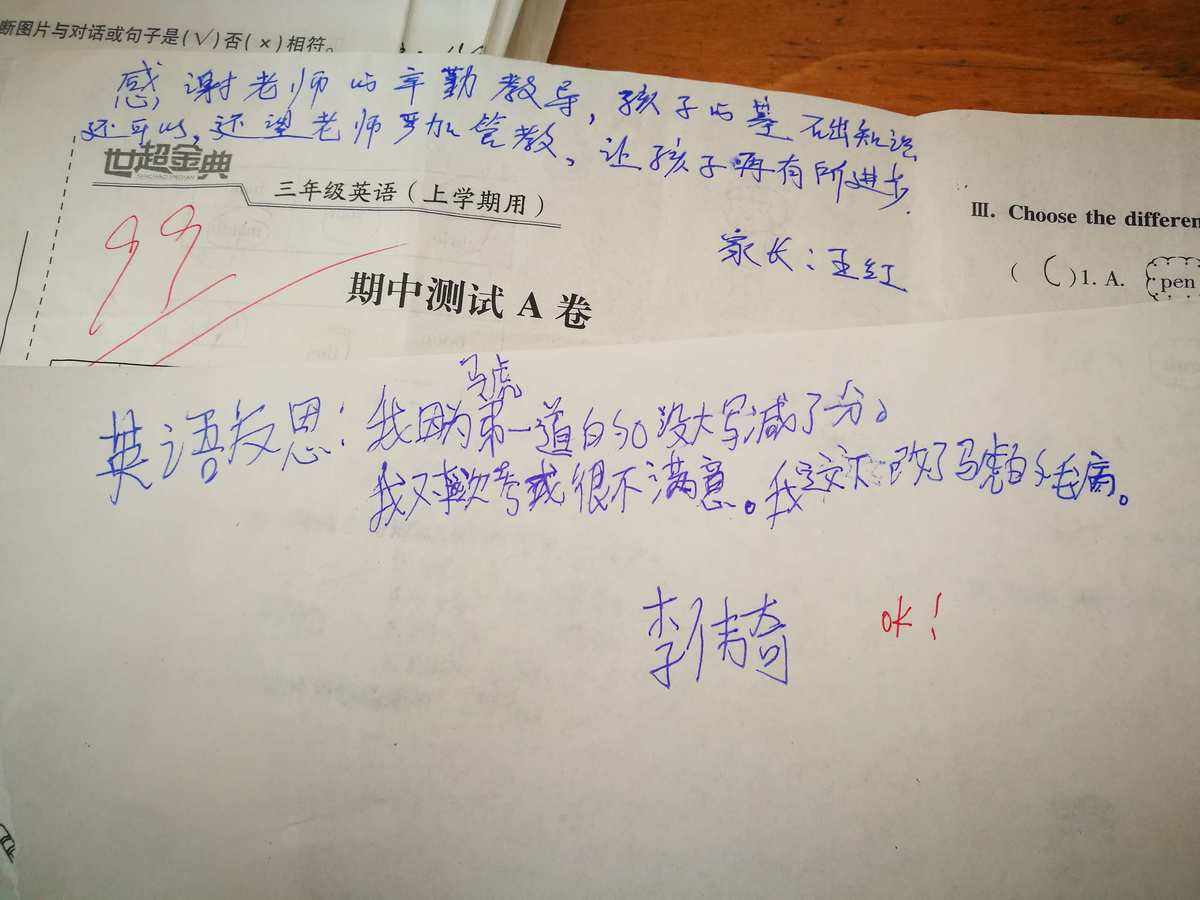 断图片与对话或句子是(√)否(×)相符。
感谢老师的辛勤教导，孩子的基础知识
还可以，还望老师严加管教。让孩子再有所进步.
世超金典
SHICHAO JINDIAN
三年级英语（上学期用）
99
家长：王红
期中测试 A 卷
III. Choose the differen
( C ) 1. A. pen
马虎
英语反思：我因为第一道的so没大写减了分。
我对这次考试很不满意。我这次 改了马虎的毛病。
李伟奇
ok！